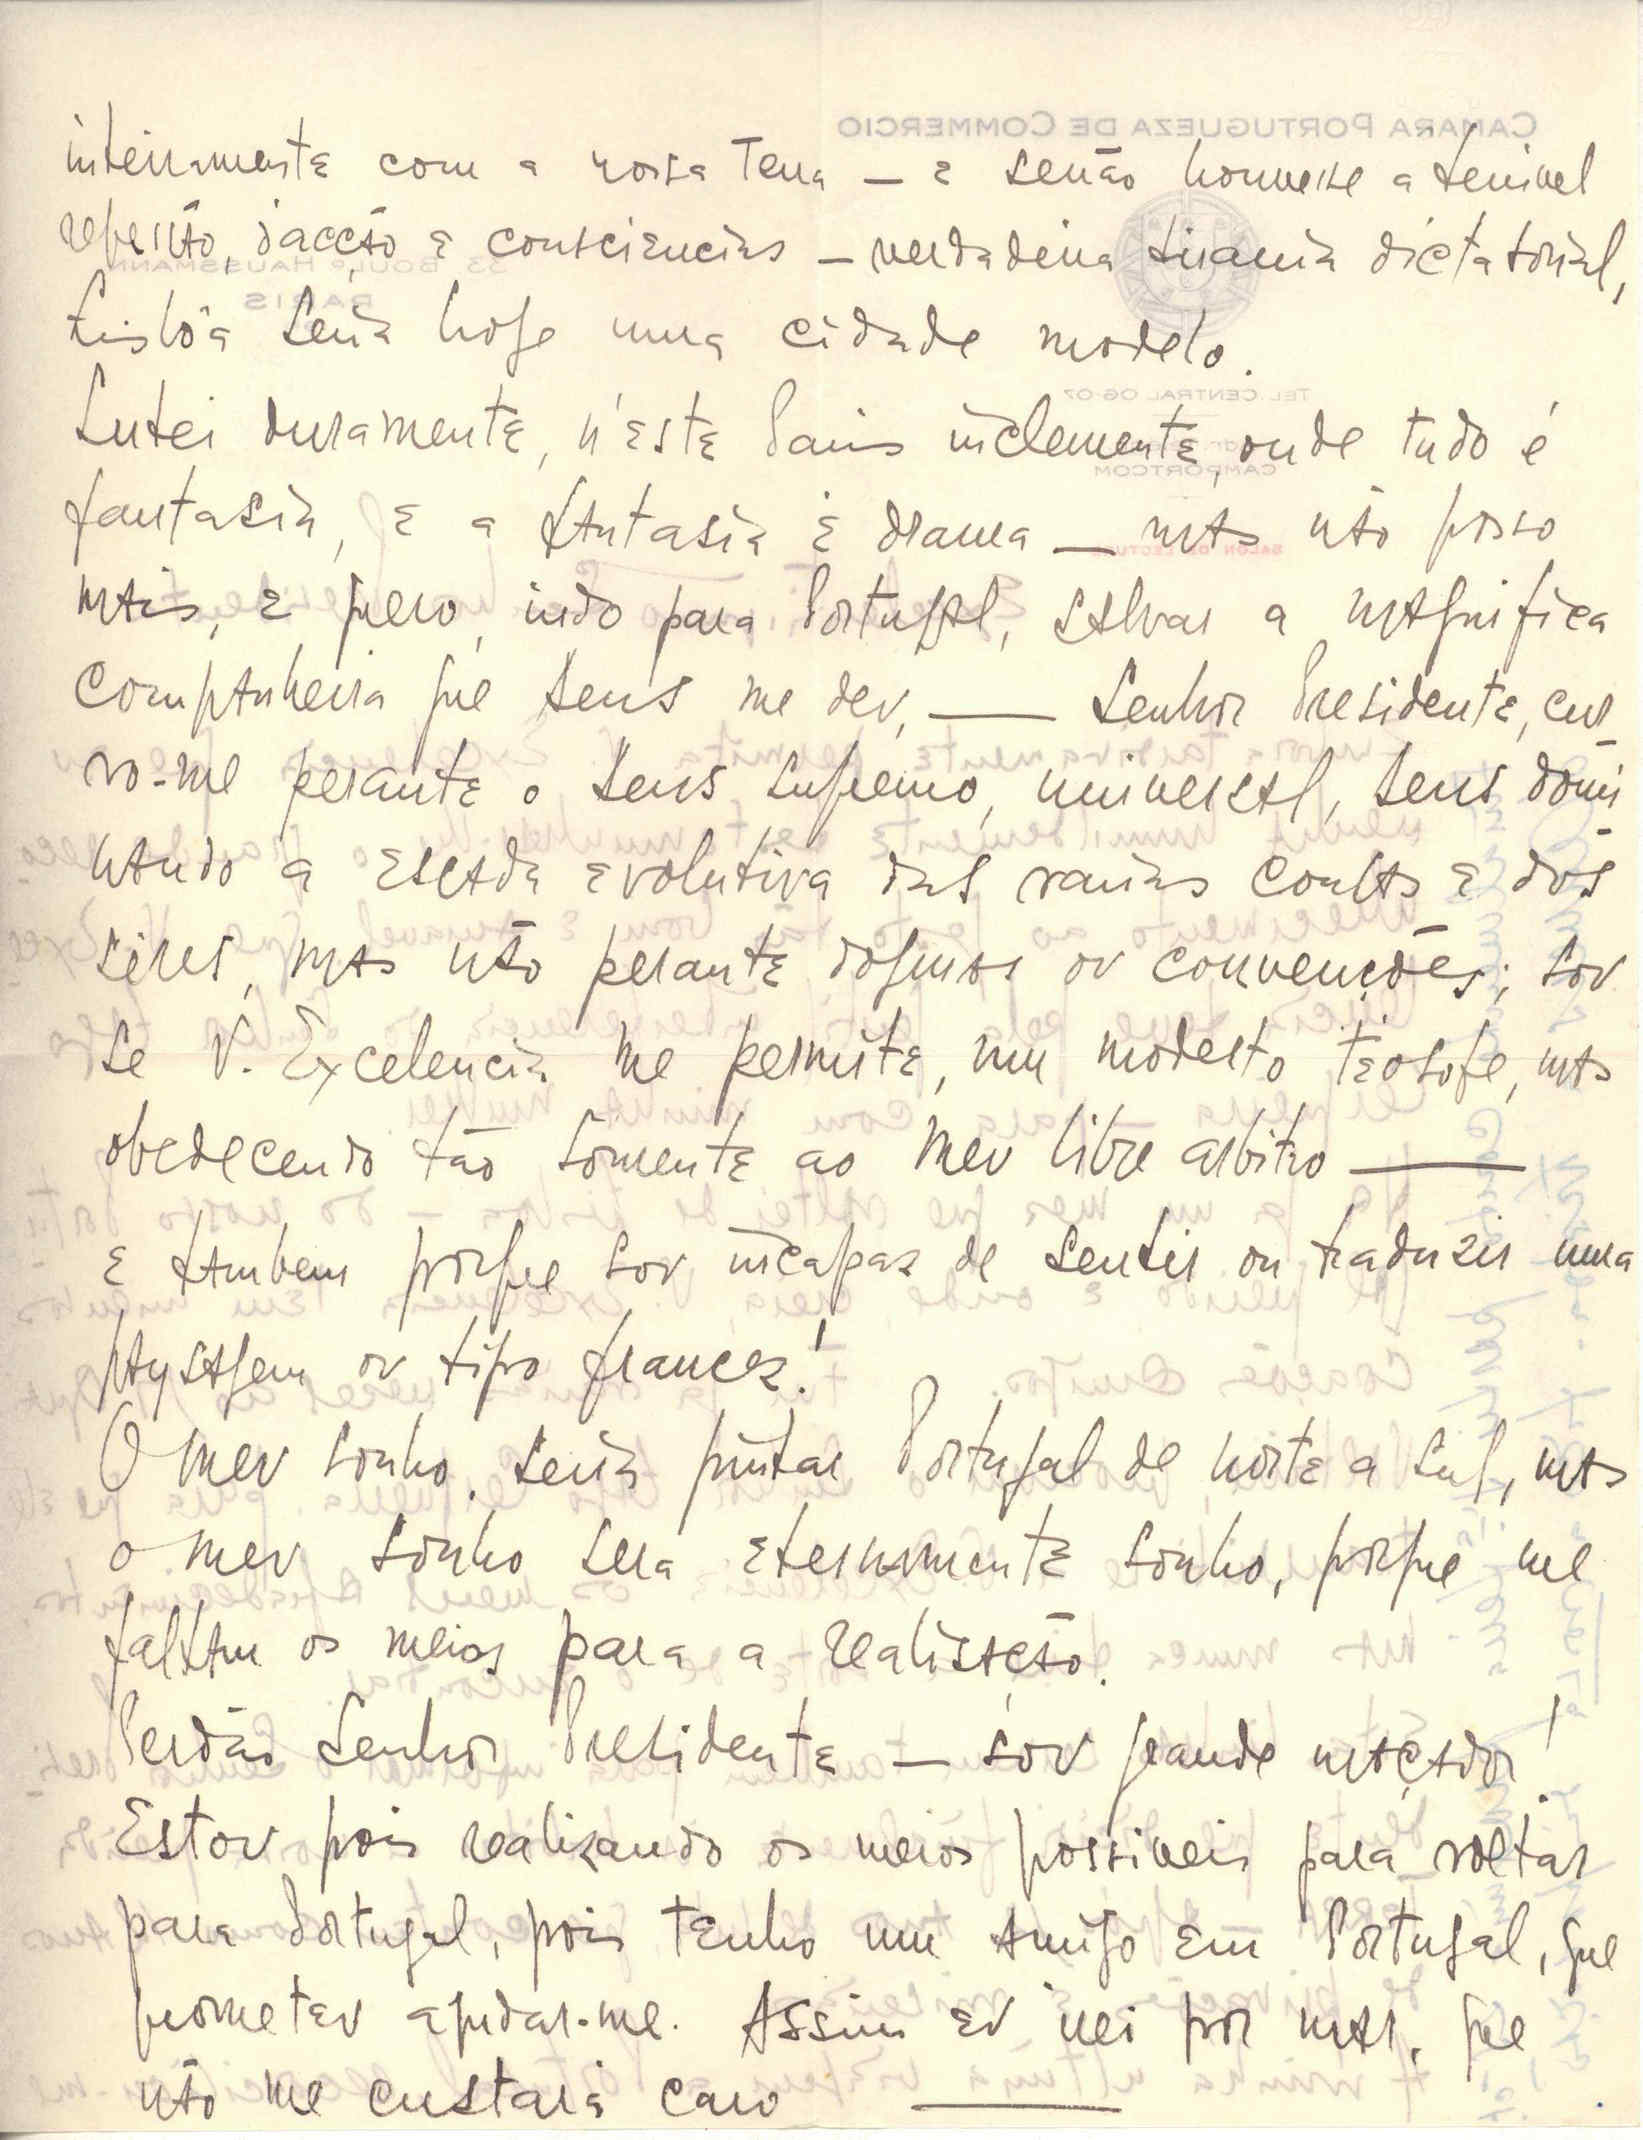 inteiramente com a nossa Terra — e senão houvesse a terrivel
repressão, d'acção e consciencias — verdadeira tirania dictatorial,
Lisbôa seria hoje uma cidade modelo.
Lutei duramente, n'este Pais inclemente, onde tudo é
fantasia, e a fantasia é drama — mas não posso
mais, e quero, indo para Portugal, salvar a magnifica
companheira que Deus me deu, — Senhor Presidente, cur-
vo-me perante o Deus Supremo, universal, Deus domi-
nando a escada evolutiva das varias coisas e dos
sêres, mas não perante dogmas ou convenções; sou
se V. Excelencia me permite, um modesto teosofe, mas
obedecendo tão sómente ao meu libre arbitro —
e tambem porque sou incapaz de sentir ou traduzir uma
paysagem ou tipo francez!
O meu sonho, seria pintar Portugal de norte a sul, mas
o meu sonho sera eternamente sonho, porque me
faltam os meios para a realisação.
Perdão Senhor Presidente — sou grande maçador!
Estou pois realizando os meios possiveis para voltar
para Portugal, pois tenho um amigo em Portugal, que
prometeu ajudar-me. Assim eu irei por mar, que
não me custará caro —
CAMARA PORTUGUEZA DE COMMERCIO
33 BOULD HAUSSMANN
PARIS
TEL. CENTRAL 06-07
CAMPORTCOM